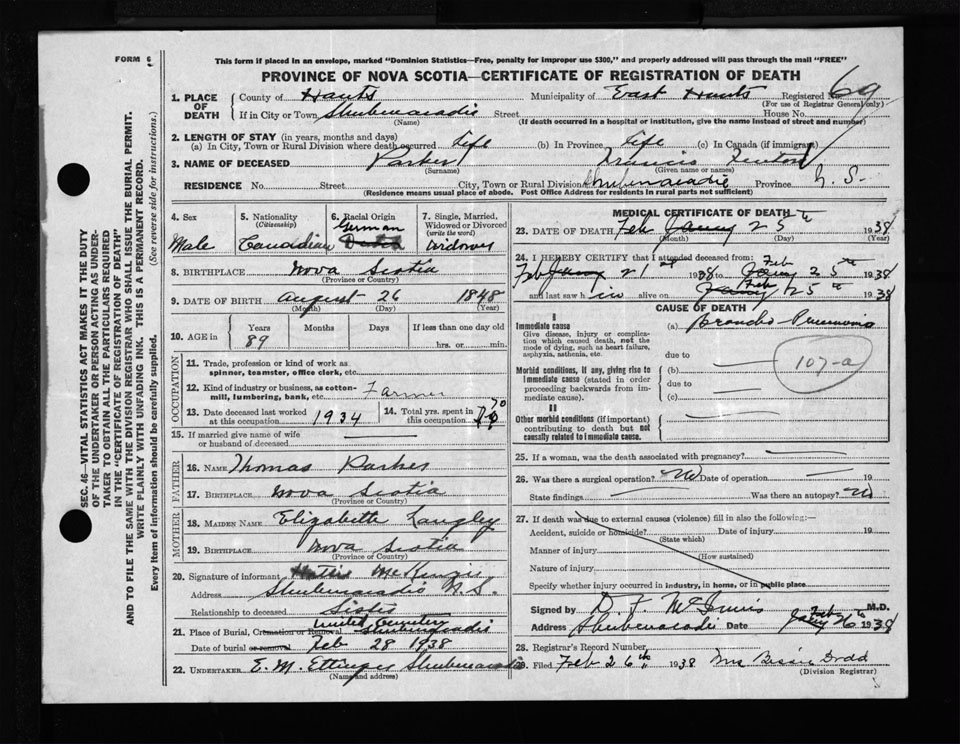 FORM 6
This form if placed in an envelope, marked "Dominion Statistics—Free, penalty for improper use $300," and properly addressed will pass through the mail "FREE"
PROVINCE OF NOVA SCOTIA—CERTIFICATE OF REGISTRATION OF DEATH
1. PLACE OF DEATH County of Hants Municipality of East Hants Registered No. 69
(For use of Registrar General only)
If in City or Town Shubenacadie Street House No.
(Name) (If death occurred in a hospital or institution, give the name instead of street and number)
2. LENGTH OF STAY (in years, months and days)
(a) In City, Town or Rural Division where death occurred Life (b) In Province Life (c) In Canada (if immigrant)
3. NAME OF DECEASED Parker Francis
(Surname) (Given name or names)
RESIDENCE No. Street City, Town or Rural Division Shubenacadie Province N.S.
(Residence means usual place of abode. Post Office Address for residents in rural parts not sufficient)
4. Sex
Male
5. Nationality
(Citizenship)
Canadian
6. Racial Origin
German
Dutch
7. Single, Married, Widowed or Divorced
(write the word)
Widower
8. BIRTHPLACE Nova Scotia
(Province or Country)
9. DATE OF BIRTH August 26 1848
(Month) (Day) (Year)
10. AGE in Years Months Days If less than one day old
89 hrs. or min.
OCCUPATION
11. Trade, profession or kind of work as
spinner, teamster, office clerk, etc.
12. Kind of industry or business, as cotton-
mill, lumbering, bank, etc. Farmer
13. Date deceased last worked
at this occupation 1934
14. Total yrs. spent in
this occupation 70
15. If married give name of wife
or husband of deceased.
FATHER
16. NAME Thomas Parker
17. BIRTHPLACE Nova Scotia
(Province or Country)
MOTHER
18. MAIDEN NAME Elizabeth Langley
19. BIRTHPLACE Nova Scotia
(Province or Country)
20. Signature of informant McKenzie
Address Shubenacadie N.S.
Relationship to deceased Sister
United Cemetery
21. Place of Burial, Cremation or Removal Shubenacadie
Date of burial or removal Feb 28 1938
22. UNDERTAKER E. M. Ettinger Shubenacadie
(Name and address)
MEDICAL CERTIFICATE OF DEATH
23. DATE OF DEATH Feb 25th 1938
(Month) (Day) (Year)
24. I HEREBY CERTIFY that I attended deceased from:
Feb 21st 1938 to Feb 25th 1938
and last saw him alive on Feb 25th 1938
CAUSE OF DEATH
I
Immediate cause (a) Broncho-Pneumonia
Give disease, injury or complica-
tion which caused death, not the
mode of dying, such as heart failure,
asphyxia, asthenia, etc.
due to
107-a
Morbid conditions, if any, giving rise to
immediate cause (stated in order
proceeding backwards from im-
mediate cause).
(b)
due to
(c)
II
Other morbid conditions (if important)
contributing to death but not
causally related to immediate cause.
25. If a woman, was the death associated with pregnancy?
26. Was there a surgical operation? No Date of operation 19
State findings Was there an autopsy? No
27. If death was due to external causes (violence) fill in also the following:—
Accident, suicide or homicide? Date of injury 19
(State which)
Manner of injury
(How sustained)
Nature of injury
Specify whether injury occurred in industry, in home, or in public place
Signed by D. F. M.D.
Address Shubenacadie Date Feb 26th 1938
28. Registrar's Record Number
29. Filed Feb 26th 1938 Mrs Bessie Dodd
(Division Registrar)
SEC. 46—VITAL STATISTICS ACT MAKES IT THE DUTY
OF THE UNDERTAKER OR PERSON ACTING AS UNDER-
TAKER TO OBTAIN ALL THE PARTICULARS REQUIRED
IN THE "CERTIFICATE OF REGISTRATION OF DEATH"
AND TO FILE THE SAME WITH THE DIVISION REGISTRAR WHO SHALL ISSUE THE BURIAL PERMIT.
WRITE PLAINLY WITH UNFADING INK. THIS IS A PERMANENT RECORD.
Every item of information should be carefully supplied. (See reverse side for instructions.)